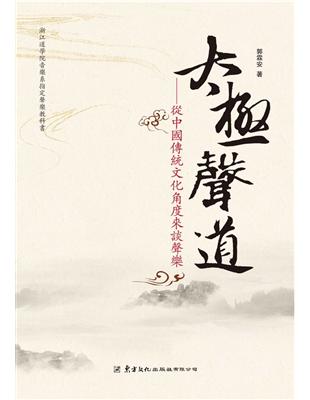 太極聲道
——從中國傳統文化角度來談聲樂
郭霖安 著
浙江道學院音樂系指定聲樂教科書
東方文化出版社有限公司